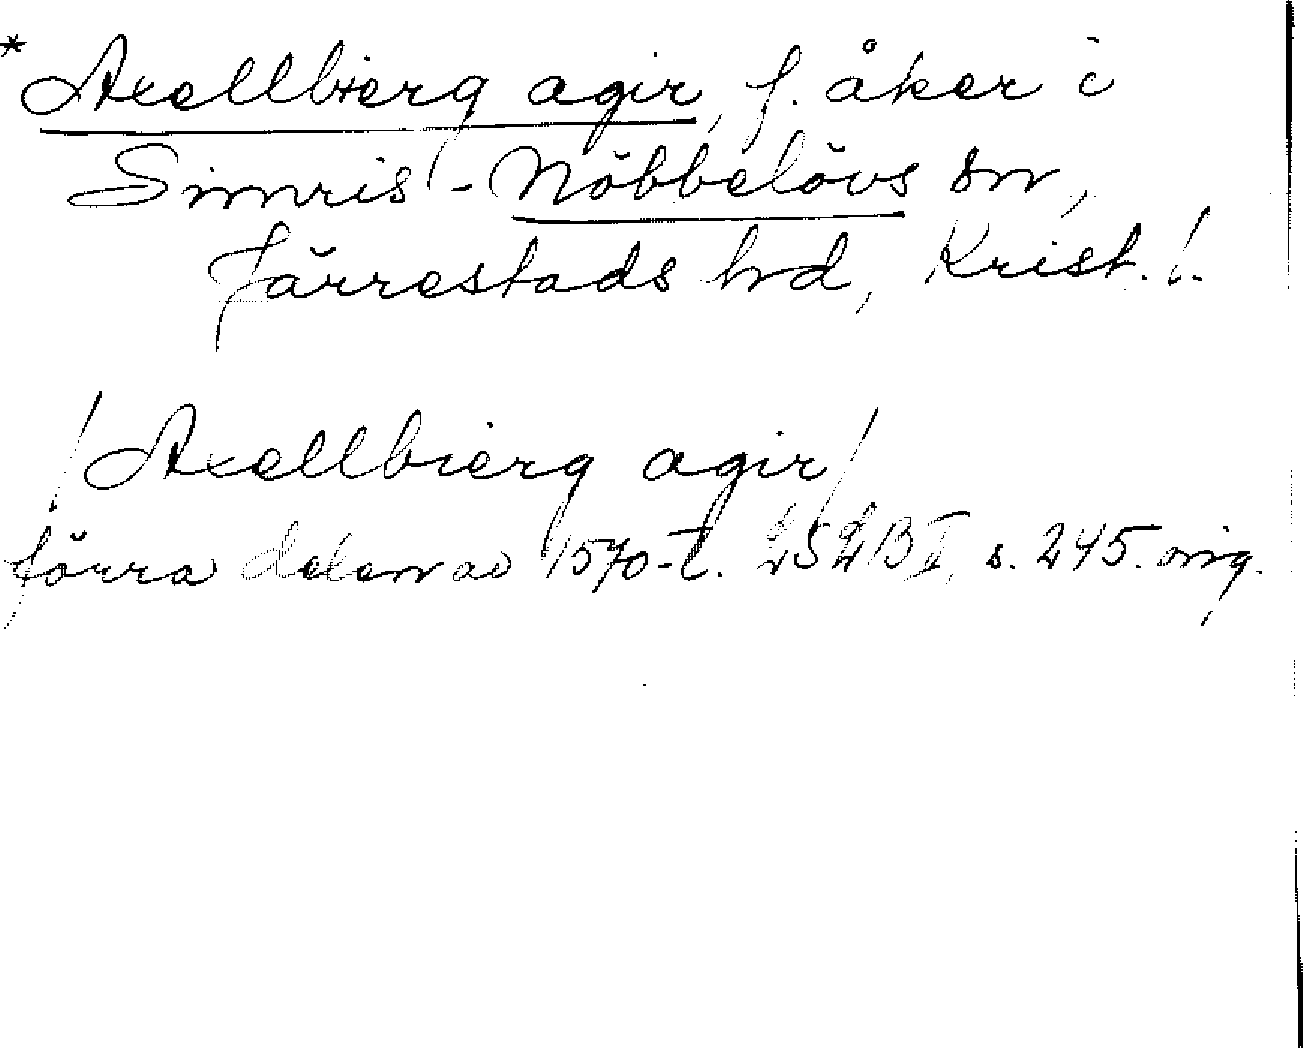 *Axellbierg agir, f. åker i
Simris-Nöbbelövs sn,
Järrestads hd, Krist. l.
/Axellbierg agir/
förra delen av 1570-t. LSLB I, s. 245. orig.